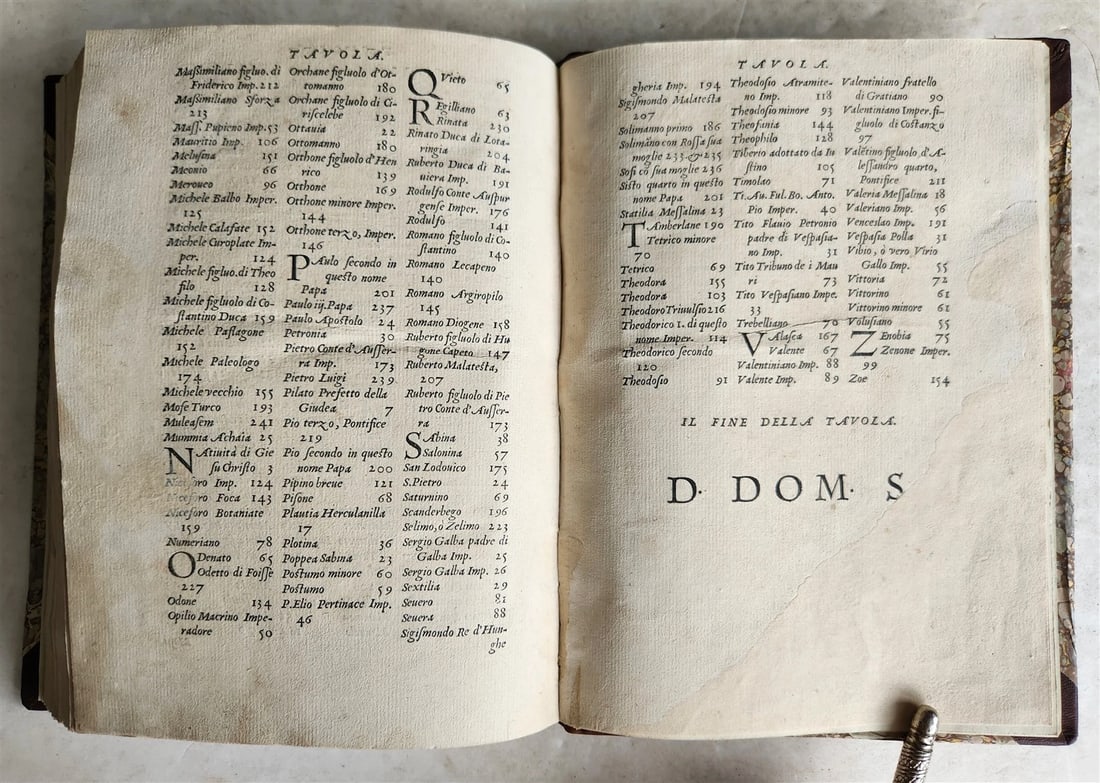 TAVOLA.
Massimiliano figluo. di
Friderico Imp. 212
Massimiliano Sforza
213
Mass. Pupieno Imp. 53
Mauritio Imp. 106
Melusina 151
Meonio 66
Meroueo 96
Michele Balbo Imper.
125
Michele Calafate 152
Michele Curoplate Im-
per. 124
Michele figluo. di Theo
filo 128
Michele figluolo di Co-
stantino Duca 159
Michele Paflagone
152
Michele Paleologo
174
Michele vecchio 155
Mose Turco 193
Muleasem 241
Mummia Achaia 25
NAtiuità di Gie
su Christo 3
Niceforo Imp. 124
Niceforo Foca 143
Niceforo Botaniate
159
Numeriano 78
ODenato 65
Odetto di Foisse
227
Odone 134
Opilio Macrino Impe-
radore 50
Orchane figluolo d'Ot-
tomanno 180
Orchane figluolo di Ci-
riscelebe 192
Ottauia 22
Ottomanno 180
Orthone figluolo d'Hen
rico 139
Orthone 169
Otthone minore Imper.
144
Otthone terzo, Imper.
146
PAulo secondo in
questo nome
Papa 201
Paulo iij. Papa 237
Paulo Apostolo 24
Petronia 30
Pietro Conte d'Ausser-
ra Imp. 173
Pietro Luigi 239
Pilato Prefetto della
Giudea 7
Pio terzo, Pontifice
219
Pio secondo in questo
nome Papa 200
Pipino breue 121
Pisone 68
Plautia Herculanilla
17
Plotina 36
Poppea Sabina 23
Postumo minore 60
Postumo 59
P. Elio Pertinace Imp.
46
QVieto 65
REgilliano 63
Rinata 230
Rinato Duca di Lota-
ringia 204
Ruberto Duca di Ba-
uiera Imp. 191
Rodulfo Conte Auspur
gense Imper. 176
Rodulfo 141
Romano figluolo di Co-
stantino 140
Romano Lecapeno
140
Romano Argiropilo
145
Romano Diogene 158
Ruberto figluolo di Hu
gone Capeto 147
Ruberto Malatesta,
207
Ruberto figluolo di Pie
tro Conte d'Ausser-
ra 173
SAbina 38
Salonina 57
San Lodouico 175
S. Pietro 24
Saturnino 69
Scanderbego 196
Selimo, ò Zelimo 223
Sergio Galba padre di
Galba Imp. 25
Sergio Galba Imp. 26
Sextilia 29
Seuero 81
Seuera 88
Sigismondo Re d'Hun-
ghe
TAVOLA.
gheria Imp. 194
Sigismondo Malatesta
207
Solimanno primo 186
Solimano con Rossa sua
moglie 233 & 235
Sofi cō sua moglie 236
Sisto quarto in questo
nome Papa 201
Statilia Messalina 23
TAmberlane 190
Tetrico minore
70
Tetrico 69
Theodora 155
Theodora 103
Theodoro Triuulsio 216
Theodorico 1. di questo
nome Imper. 114
Theodorico secondo
120
Theodosio 91
Theodosio Atramite-
no Imp. 118
Theodosio minore 93
Theofania 144
Theophilo 128
Tiberio adottato da Iu
stino 105
Timolao 71
Ti. Au. Ful. Bo. Anto.
Pio Imper. 40
Tito Flauio Petronio
padre di Vespasia-
no Imp. 31
Tito Tribuno de i Mau
ri 73
Tito Vespasiano Impe.
33
Trebelliano 70
VAlasca 167
Valente 67
Valentiniano Imp. 88
Valente Imp. 89
Valentiniano fratello
di Gratiano 90
Valentiniano Imper. fi-
gluolo di Costanzo
97
Valētino figluolo d'A-
lessandro quarto,
Pontifice 211
Valeria Messalina 18
Valeriano Imp. 56
Venceslao Imp. 191
Vespasia Polla 31
Vibio, ò vero Virio
Gallo Imp. 55
Vittoria 72
Vittorino 61
Vittorino minore 61
Volusiano 55
ZEnobia 75
Zenone Imper.
99
Zoe 154
IL FINE DELLA TAVOLA.
D. DOM. S